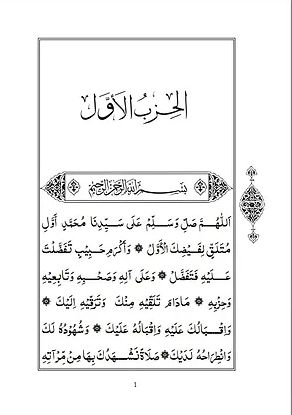 الحِزبُ الأَوَّل
بِسْمِ اللهِ الرَّحْمٰنِ الرَّحِيمِ
اَللّٰهُمَّ صَلِّ وَسَلِّمْ عَلَى سَيِّدِنَا مُحَمَّدٍ أَوَّلِ
مُتَلَقٍّ لِفَيْضِكَ الْأَوَّلْ ۞ وَأَكْرَمِ حَبِيبٍ تَفَضَّلْتَ
عَلَيْهِ فَتَفَضَّلْ ۞ وَعَلَى آلِهِ وَصَحْبِهِ وَتَابِعِيهِ
وَحِزْبِهِ ۞ مَادَامَ تَلَقِّيهِ مِنْكَ وَتَرَقِّيهِ إِلَيْكَ ۞
وَإِقْبَالُكَ عَلَيْهِ وَإِقْبَالُهُ عَلَيْكَ ۞ وَشُهُودُهُ لَكَ
وَانْطِرَاحُهُ لَدَيْكَ ۞ صَلَاةً نَشْهَدُكَ بِهَا مِنْ مِرْآتِهِ
1